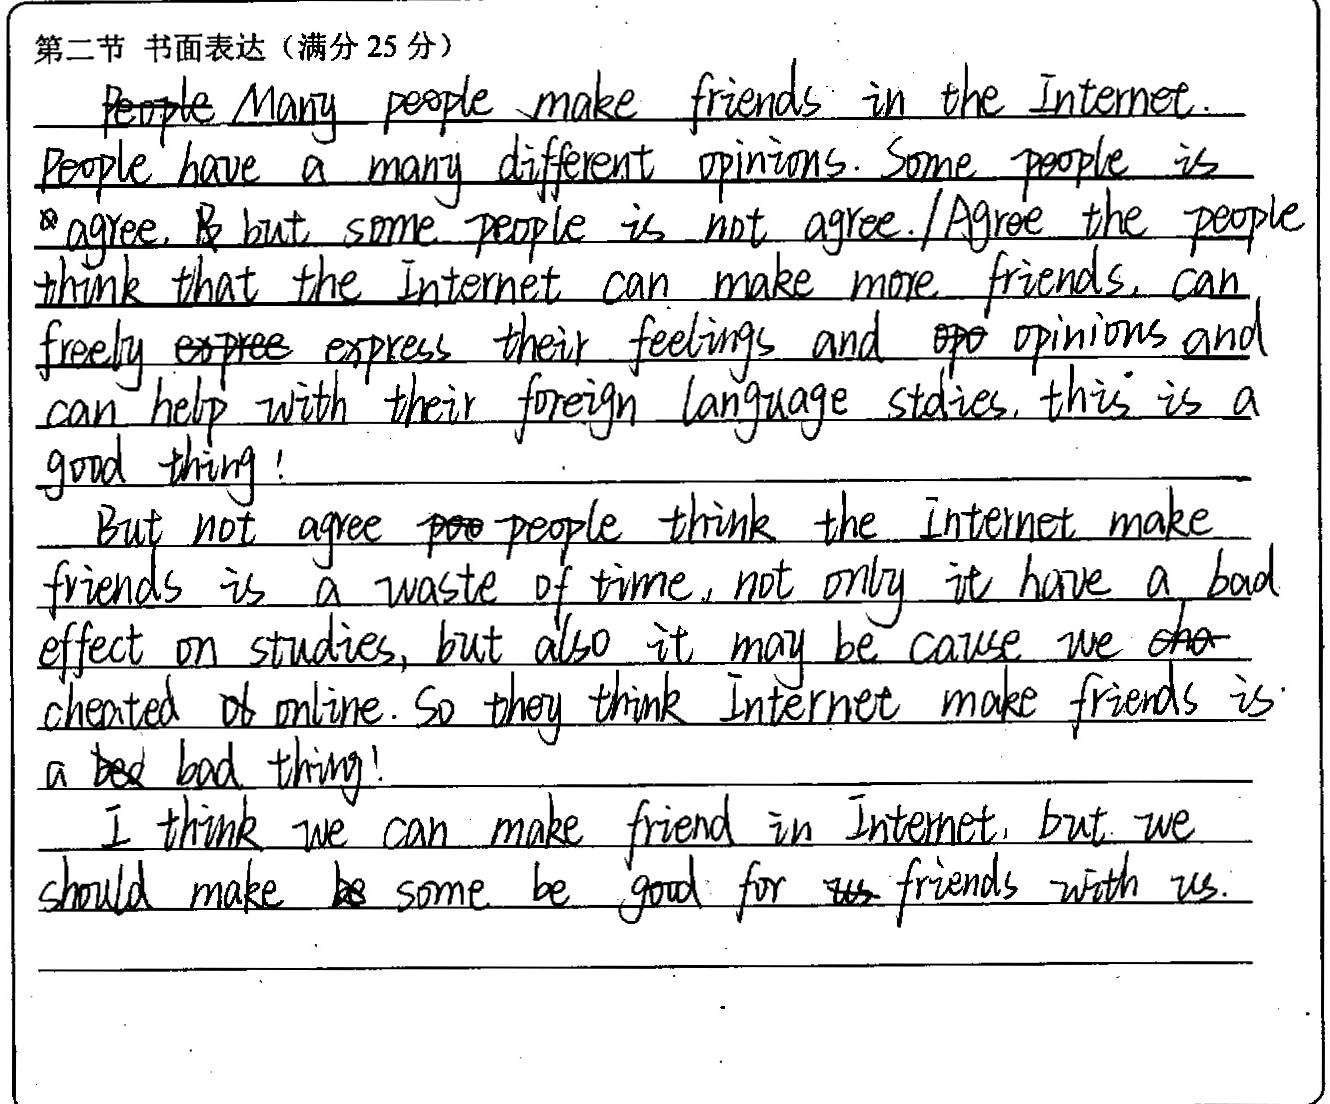 第二节 书面表达（满分 25 分）
People Many people make friends in the Internet.
People have a many different opinions. Some people is
agree. but some people is not agree./Agree the people
think that the Internet can make more friends, can
freely expree express their feelings and opo opinions and
can help with their foreign language stdies. this is a
good thing!
But not agree poo people think the Internet make
friends is a waste of time, not only it have a bad
effect on studies, but also it may be cause we cha
cheated online. So they think Internet make friends is
a bed bad thing!
I think we can make friend in Internet, but we
should make be some be good for us friends with us.